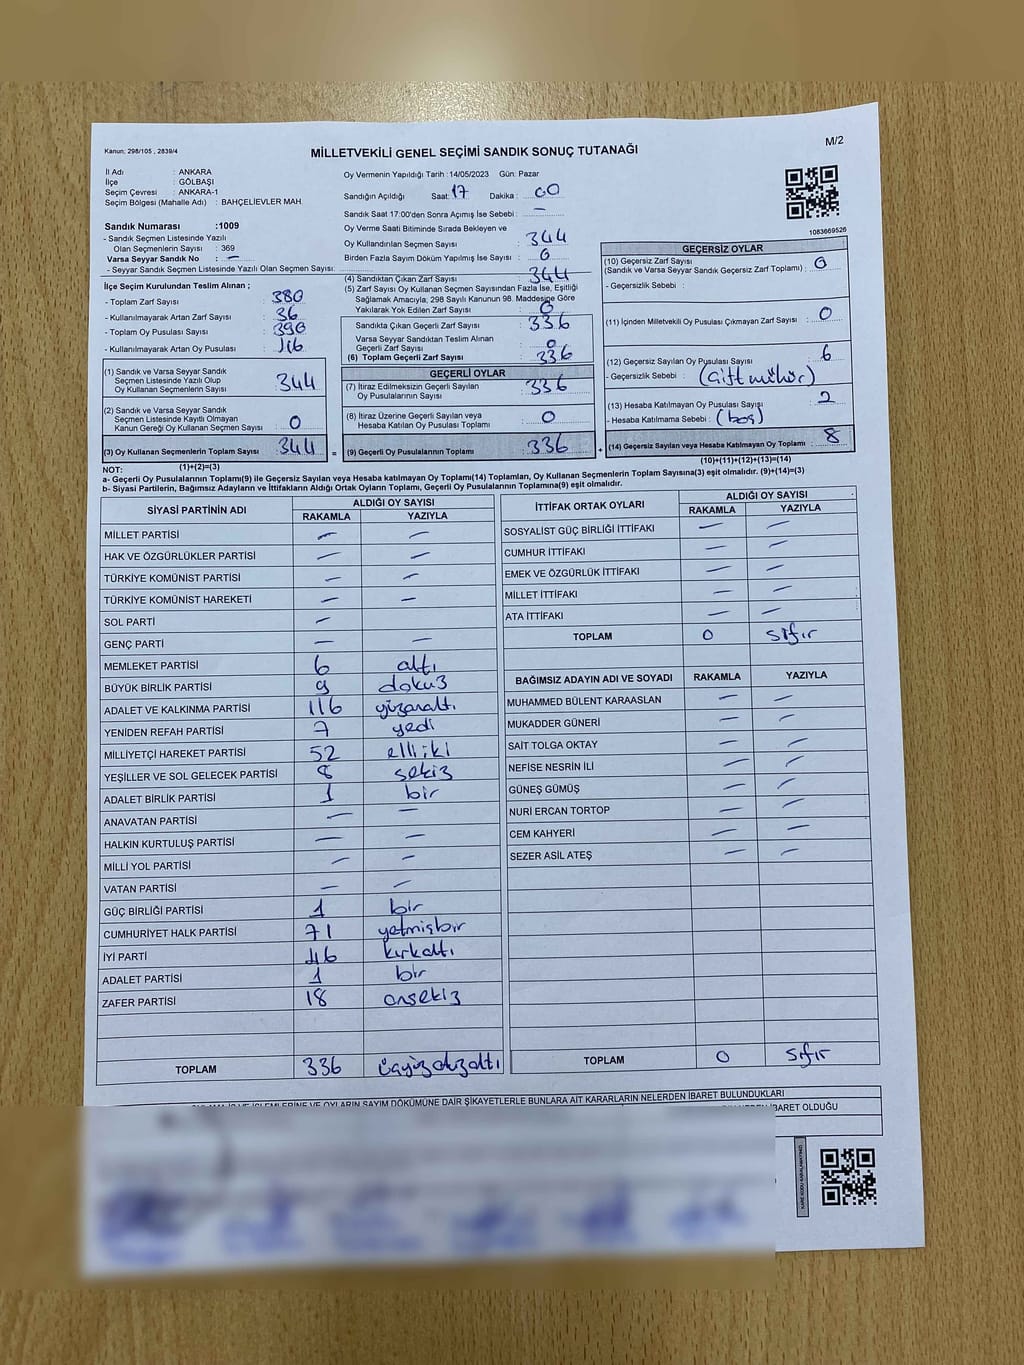 Kanun; 298/105 , 2839/4
MİLLETVEKİLİ GENEL SEÇİMİ SANDIK SONUÇ TUTANAĞI
M/2
İl Adı : ANKARA
İlçe : GÖLBAŞI
Seçim Çevresi : ANKARA-1
Seçim Bölgesi (Mahalle Adı) : BAHÇELİEVLER MAH.
Sandık Numarası :1009
- Sandık Seçmen Listesinde Yazılı
Olan Seçmenlerin Sayısı : 369
Varsa Seyyar Sandık No : —
- Seyyar Sandık Seçmen Listesinde Yazılı Olan Seçmen Sayısı:
İlçe Seçim Kurulundan Teslim Alınan ;
- Toplam Zarf Sayısı : 380
- Kullanılmayarak Artan Zarf Sayısı : 36
- Toplam Oy Pusulası Sayısı : 390
- Kullanılmayarak Artan Oy Pusulası :
(1) Sandık ve Varsa Seyyar Sandık
Seçmen Listesinde Yazılı Olup
Oy Kullanan Seçmenlerin Sayısı : 344
(2) Sandık ve Varsa Seyyar Sandık
Seçmen Listesinde Kayıtlı Olmayan
Kanun Gereği Oy Kullanan Seçmen Sayısı : 0
(3) Oy Kullanan Seçmenlerin Toplam Sayısı : 344
(1)+(2)=(3)
Oy Vermenin Yapıldığı Tarih : 14/05/2023 Gün: Pazar
Sandığın Açıldığı Saat: 17 Dakika : 00
Sandık Saat 17:00'den Sonra Açımış İse Sebebi : —
Oy Verme Saati Bitiminde Sırada Bekleyen ve
Oy Kullandırılan Seçmen Sayısı : 344
Birden Fazla Sayım Döküm Yapılmış İse Sayısı : 0
(4) Sandıktan Çıkan Zarf Sayısı : 344
(5) Zarf Sayısı Oy Kullanan Seçmen Sayısından Fazla İse, Eşitliği
Sağlamak Amacıyla, 298 Sayılı Kanunun 98. Maddesine Göre
Yakılarak Yok Edilen Zarf Sayısı : 0
Sandıkta Çıkan Geçerli Zarf Sayısı : 336
Varsa Seyyar Sandıktan Teslim Alınan
Geçerli Zarf Sayısı : 0
(6) Toplam Geçerli Zarf Sayısı : 336
GEÇERLİ OYLAR
(7) İtiraz Edilmeksizin Geçerli Sayılan
Oy Pusulalarının Sayısı : 336
(8) İtiraz Üzerine Geçerli Sayılan veya
Hesaba Katılan Oy Pusulası Toplamı : 0
= (9) Geçerli Oy Pusulalarının Toplamı : 336 +
1083669526
GEÇERSİZ OYLAR
(10) Geçersiz Zarf Sayısı
(Sandık ve Varsa Seyyar Sandık Geçersiz Zarf Toplamı) : 0
- Geçersizlik Sebebi :
(11) İçinden Milletvekili Oy Pusulası Çıkmayan Zarf Sayısı : 0
(12) Geçersiz Sayılan Oy Pusulası Sayısı : 6
- Geçersizlik Sebebi : (Çift mühür)
(13) Hesaba Katılmayan Oy Pusulası Sayısı : 2
- Hesaba Katılmama Sebebi : (boş)
(14) Geçersiz Sayılan veya Hesaba Katılmayan Oy Toplamı : 8
(10)+(11)+(12)+(13)=(14)
NOT:
a- Geçerli Oy Pusulalarının Toplamı(9) ile Geçersiz Sayılan veya Hesaba katılmayan Oy Toplamı(14) Toplamları, Oy Kullanan Seçmenlerin Toplam Sayısına(3) eşit olmalıdır. (9)+(14)=(3)
b- Siyasi Partilerin, Bağımsız Adayların ve İttifakların Aldığı Ortak Oyların Toplamı, Geçerli Oy Pusulalarının Toplamına(9) eşit olmalıdır.
SİYASİ PARTİNİN ADI ALDIĞI OY SAYISI
RAKAMLA YAZIYLA
MİLLET PARTİSİ — —
HAK VE ÖZGÜRLÜKLER PARTİSİ — —
TÜRKİYE KOMÜNİST PARTİSİ — —
TÜRKİYE KOMÜNİST HAREKETİ — —
SOL PARTİ —
GENÇ PARTİ — —
MEMLEKET PARTİSİ 6 altı
BÜYÜK BİRLİK PARTİSİ 9 dokuz
ADALET VE KALKINMA PARTİSİ 116 yüzonaltı
YENİDEN REFAH PARTİSİ 7 yedi
MİLLİYETÇİ HAREKET PARTİSİ 52 elliiki
YEŞİLLER VE SOL GELECEK PARTİSİ 8 sekiz
ADALET BİRLİK PARTİSİ 1 bir
ANAVATAN PARTİSİ — —
HALKIN KURTULUŞ PARTİSİ — —
MİLLİ YOL PARTİSİ — —
VATAN PARTİSİ — —
GÜÇ BİRLİĞİ PARTİSİ 1 bir
CUMHURİYET HALK PARTİSİ 71 yetmişbir
İYİ PARTİ 46 kırkaltı
ADALET PARTİSİ 1 bir
ZAFER PARTİSİ 18 onsekiz
TOPLAM 336 üçyüzotuzaltı
İTTİFAK ORTAK OYLARI ALDIĞI OY SAYISI
RAKAMLA YAZIYLA
SOSYALİST GÜÇ BİRLİĞİ İTTİFAKI — —
CUMHUR İTTİFAKI — —
EMEK VE ÖZGÜRLÜK İTTİFAKI — —
MİLLET İTTİFAKI — —
ATA İTTİFAKI — —
TOPLAM 0 sıfır
BAĞIMSIZ ADAYIN ADI VE SOYADI RAKAMLA YAZIYLA
MUHAMMED BÜLENT KARAASLAN — —
MUKADDER GÜNERİ — —
SAİT TOLGA OKTAY — —
NEFİSE NESRİN İLİ — —
GÜNEŞ GÜMÜŞ — —
NURİ ERCAN TORTOP — —
CEM KAHYERİ — —
SEZER ASİL ATEŞ — —
TOPLAM 0 sıfır
İŞLEMLERİNE VE OYLARIN SAYIM DÖKÜMÜNE DAİR ŞİKAYETLERLE BUNLARA AİT KARARLARIN NELERDEN İBARET BULUNDUKLARI
İBARET OLDUĞU